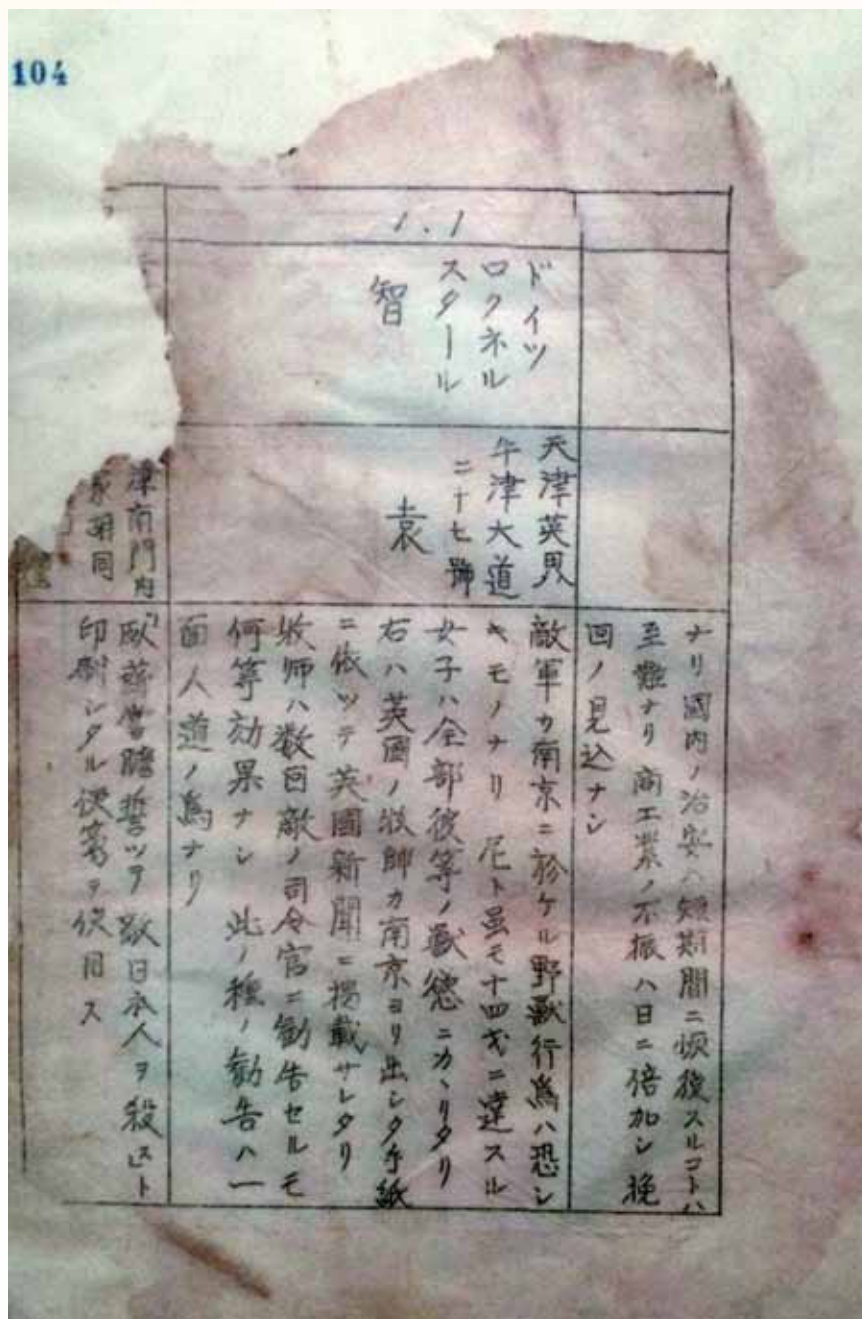 104
ナリ國内ノ治安ハ短期間ニ恢復スルコトハ
至難ナリ商工業ノ不振ハ日ニ倍加シ挽
回ノ見込ナシ
1.1
ドイツ
ロクネル
スタール
智
天津英界
牛津大道
二十七號
袁
敵軍カ南京ニ於ケル野獸行為ハ恐シ
キモノナリ 尼ト虽モ十四才ニ達スル
女子ハ全部彼等ノ獸慾ニカヽリタリ
右ハ英國ノ牧師カ南京ヨリ出シタ手紙
ニ依ツテ英國新聞ニ掲載サレタリ
牧師ハ数回敵ノ司令官ニ勧告セルモ
何等効果ナシ 此ノ種ノ勧告ハ一
面人道ノ為ナリ
津南門内
胡同
「臥薪嘗膽誓ツテ敵日本人ヲ殺ス」ト
印刷シタル便箋ヲ使用ス